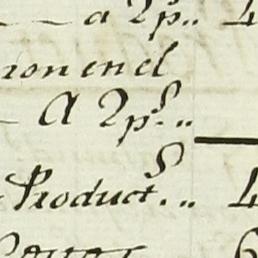 a 2p.s.. 4
non en el
A 2p.s..
Product.s..  4
6